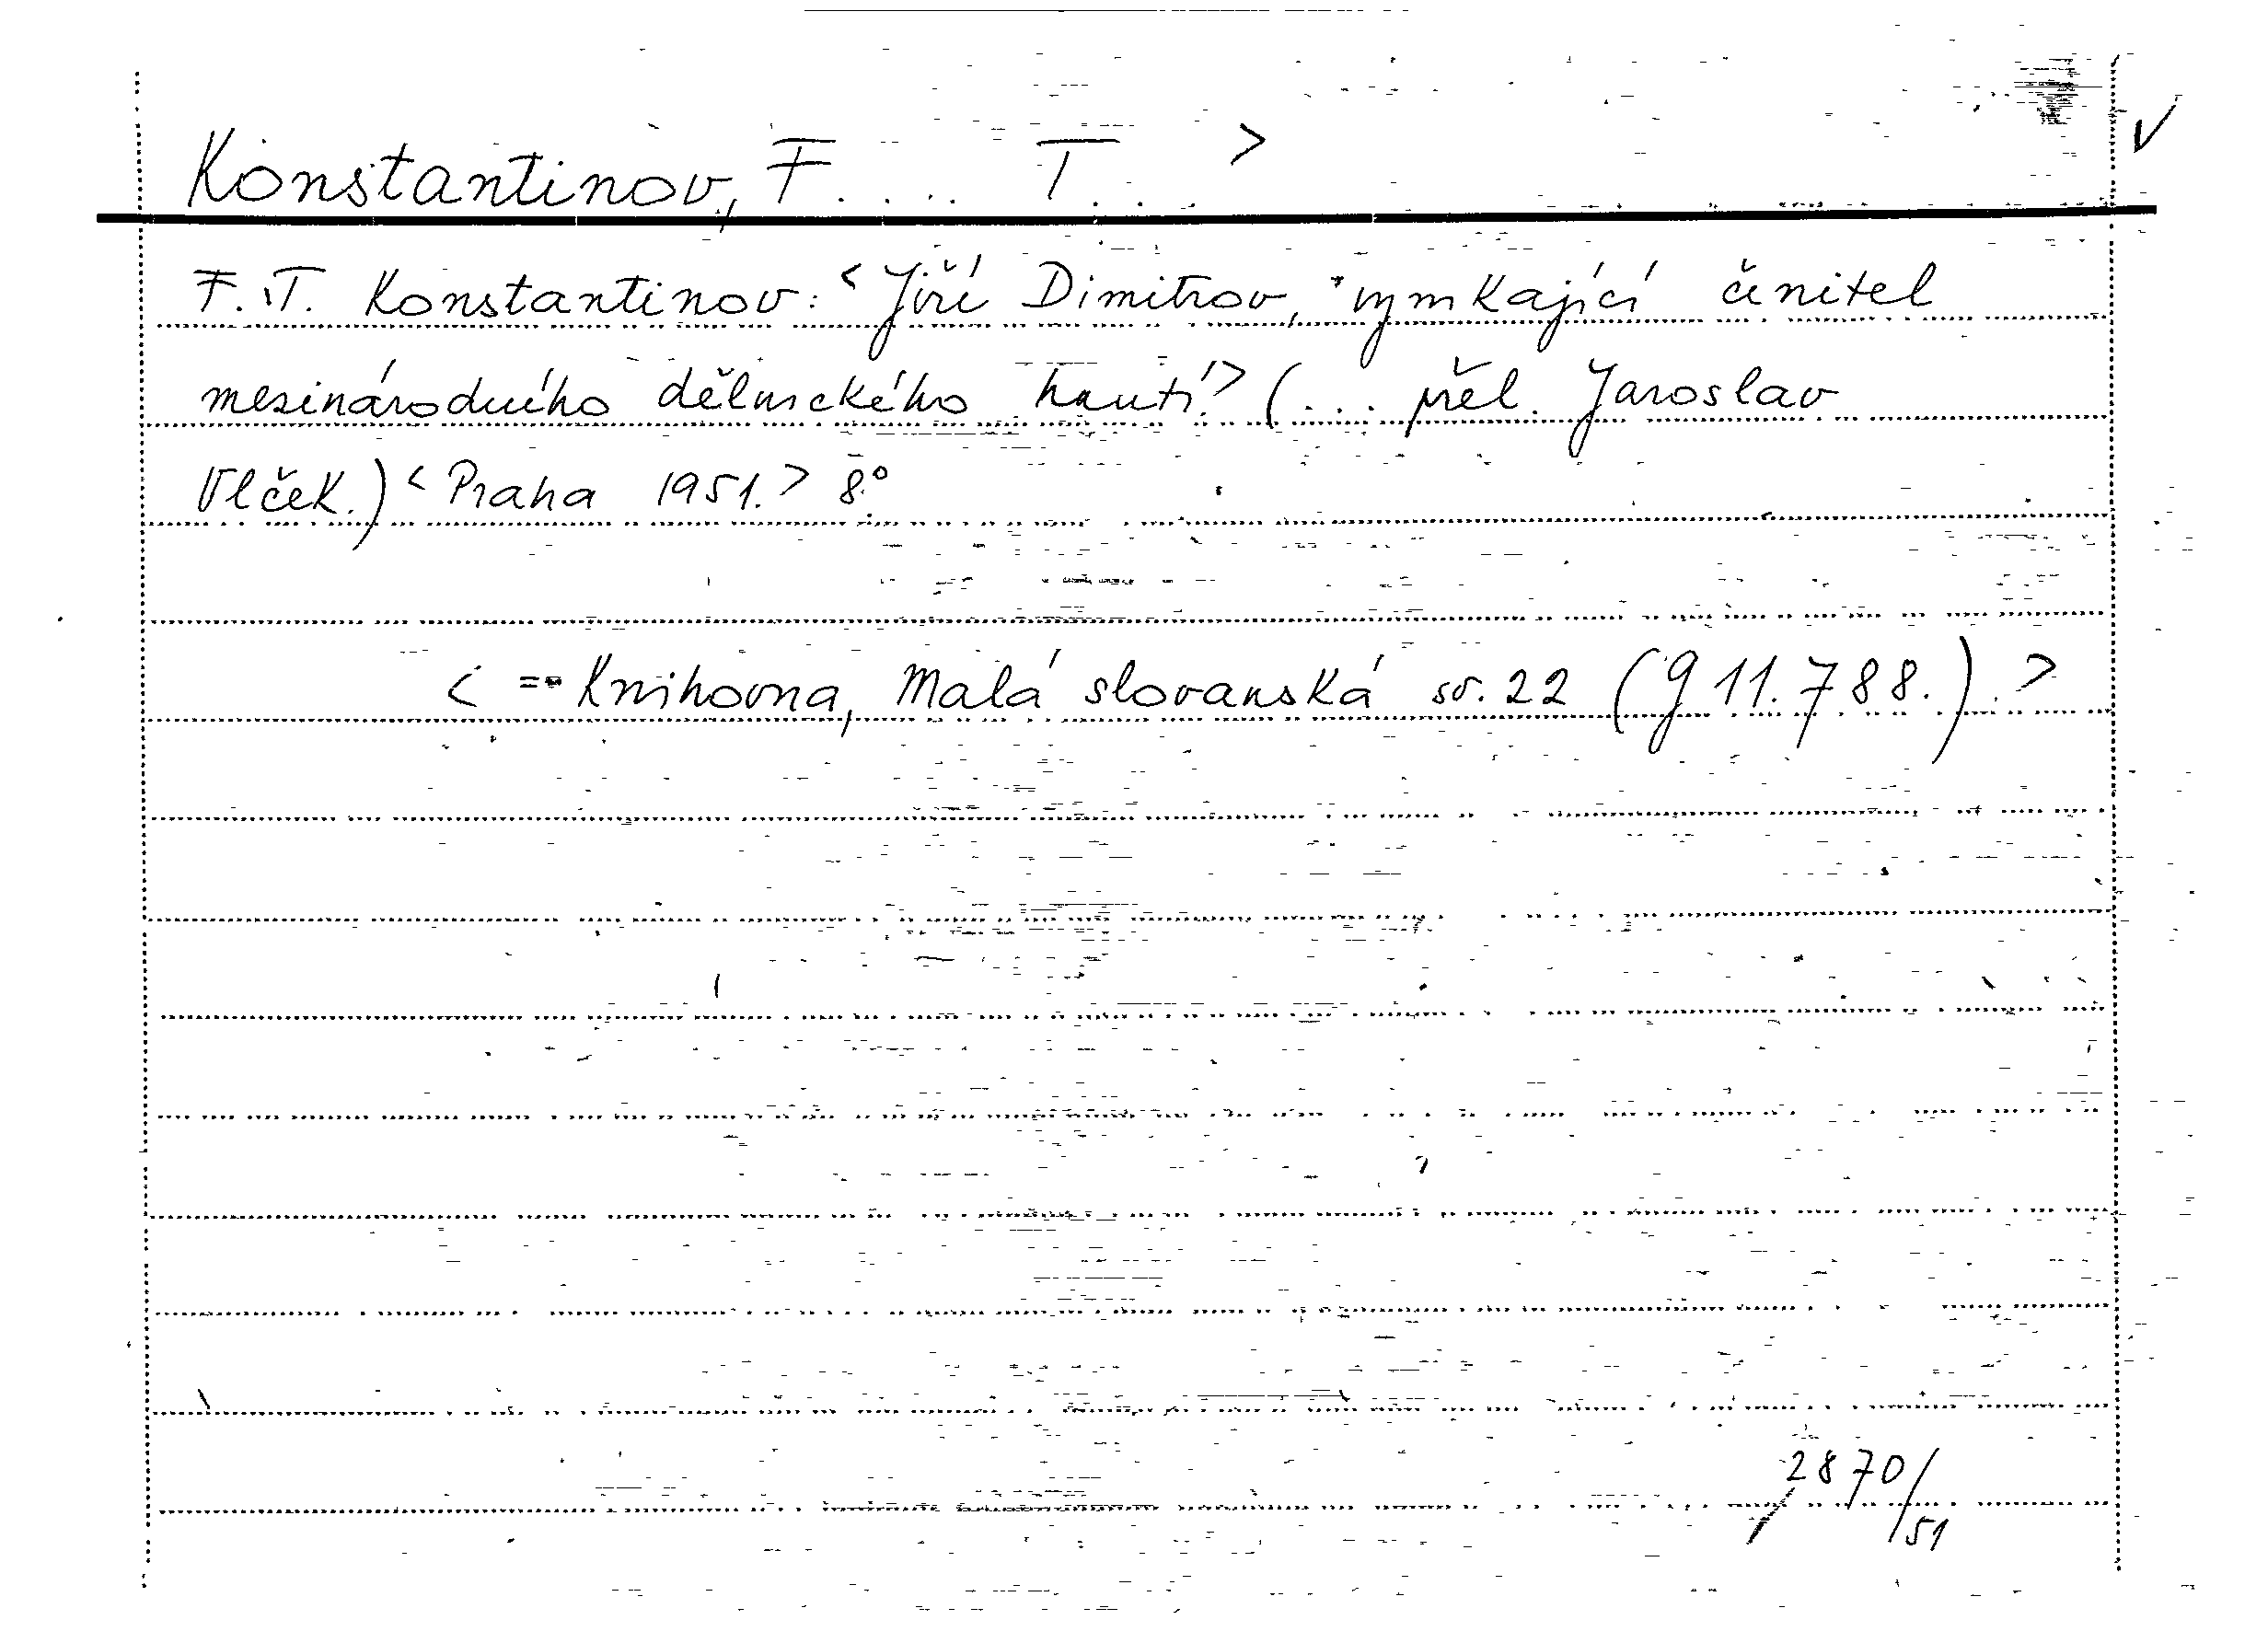 Konstantinov, F.... T... >
F. T. Konstantinov: <Jiří Dimitrov, vynikající činitel
mezinárodního dělnického hnutí.> (... přel. Jaroslav
Vlček.) <Praha 1951.> 8°
< = Knihovna, Malá slovanská sv. 22 (g 11.788.). >
2870/51